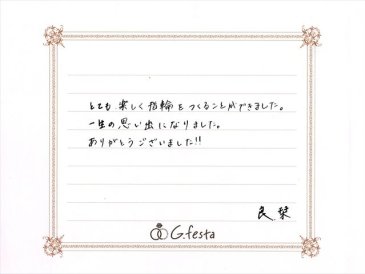 とても楽しく指輪をつくることができました。
一生の思い出になりました。
ありがとうございました!!
良. 栞
G.festa